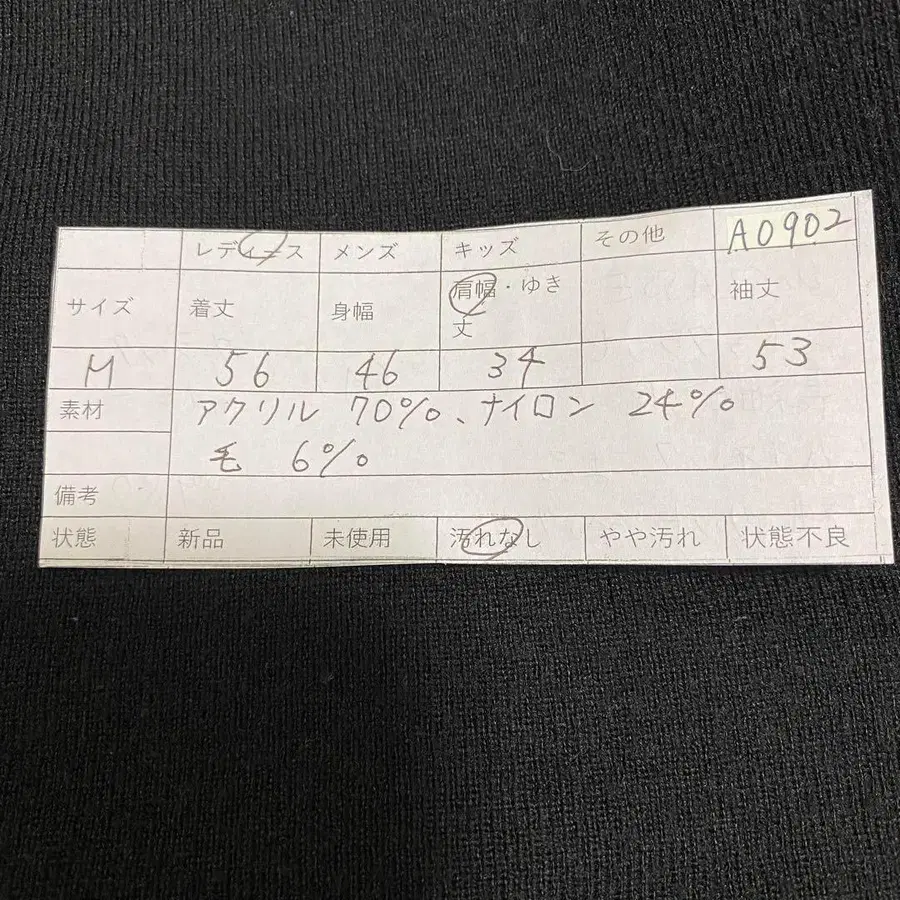 レディース メンズ キッズ その他 A0902
サイズ 着丈 身幅 肩幅・ゆき丈 袖丈
M 56 46 34 53
素材 アクリル 70%、ナイロン 24%
毛 6%
備考
状態 新品 未使用 汚れなし やや汚れ 状態不良